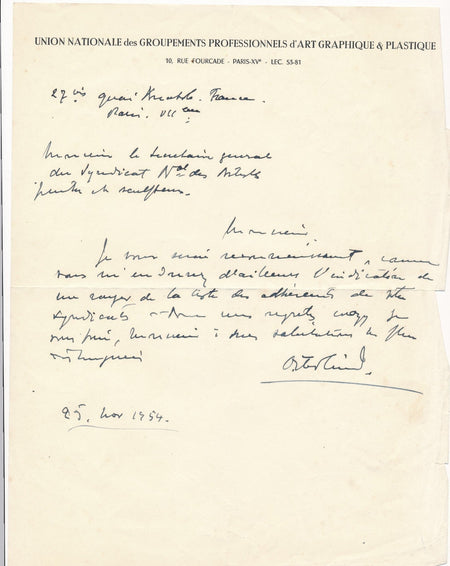 UNION NATIONALE des GROUPEMENTS PROFESSIONNELS d'ART GRAPHIQUE & PLASTIQUE
10, RUE FOURCADE - PARIS-XVᵉ - LEC. 53-81
27 bis quai Anatole. France.
Paris. VII eme
Monsieur le Secrétaire general
du Syndicat Nal des Artistes
peintres et sculpteurs.
Monsieur,
Je vous serai reconnaissant, comme
vous m'en d'ailleurs l'indication de
me rayer de la liste des adhérents de votre
syndicat. mes regrets je
vous prie, Monsieur à mes salutations les plus
distinguées
Osterlind.
25. Nov 1954.